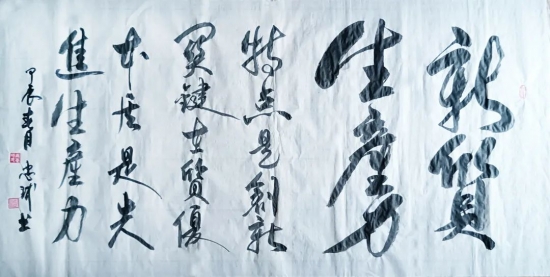 新質
生產力
特点是創新
関鍵在質優
本质是先
進生産力
甲辰春月忠瑊书